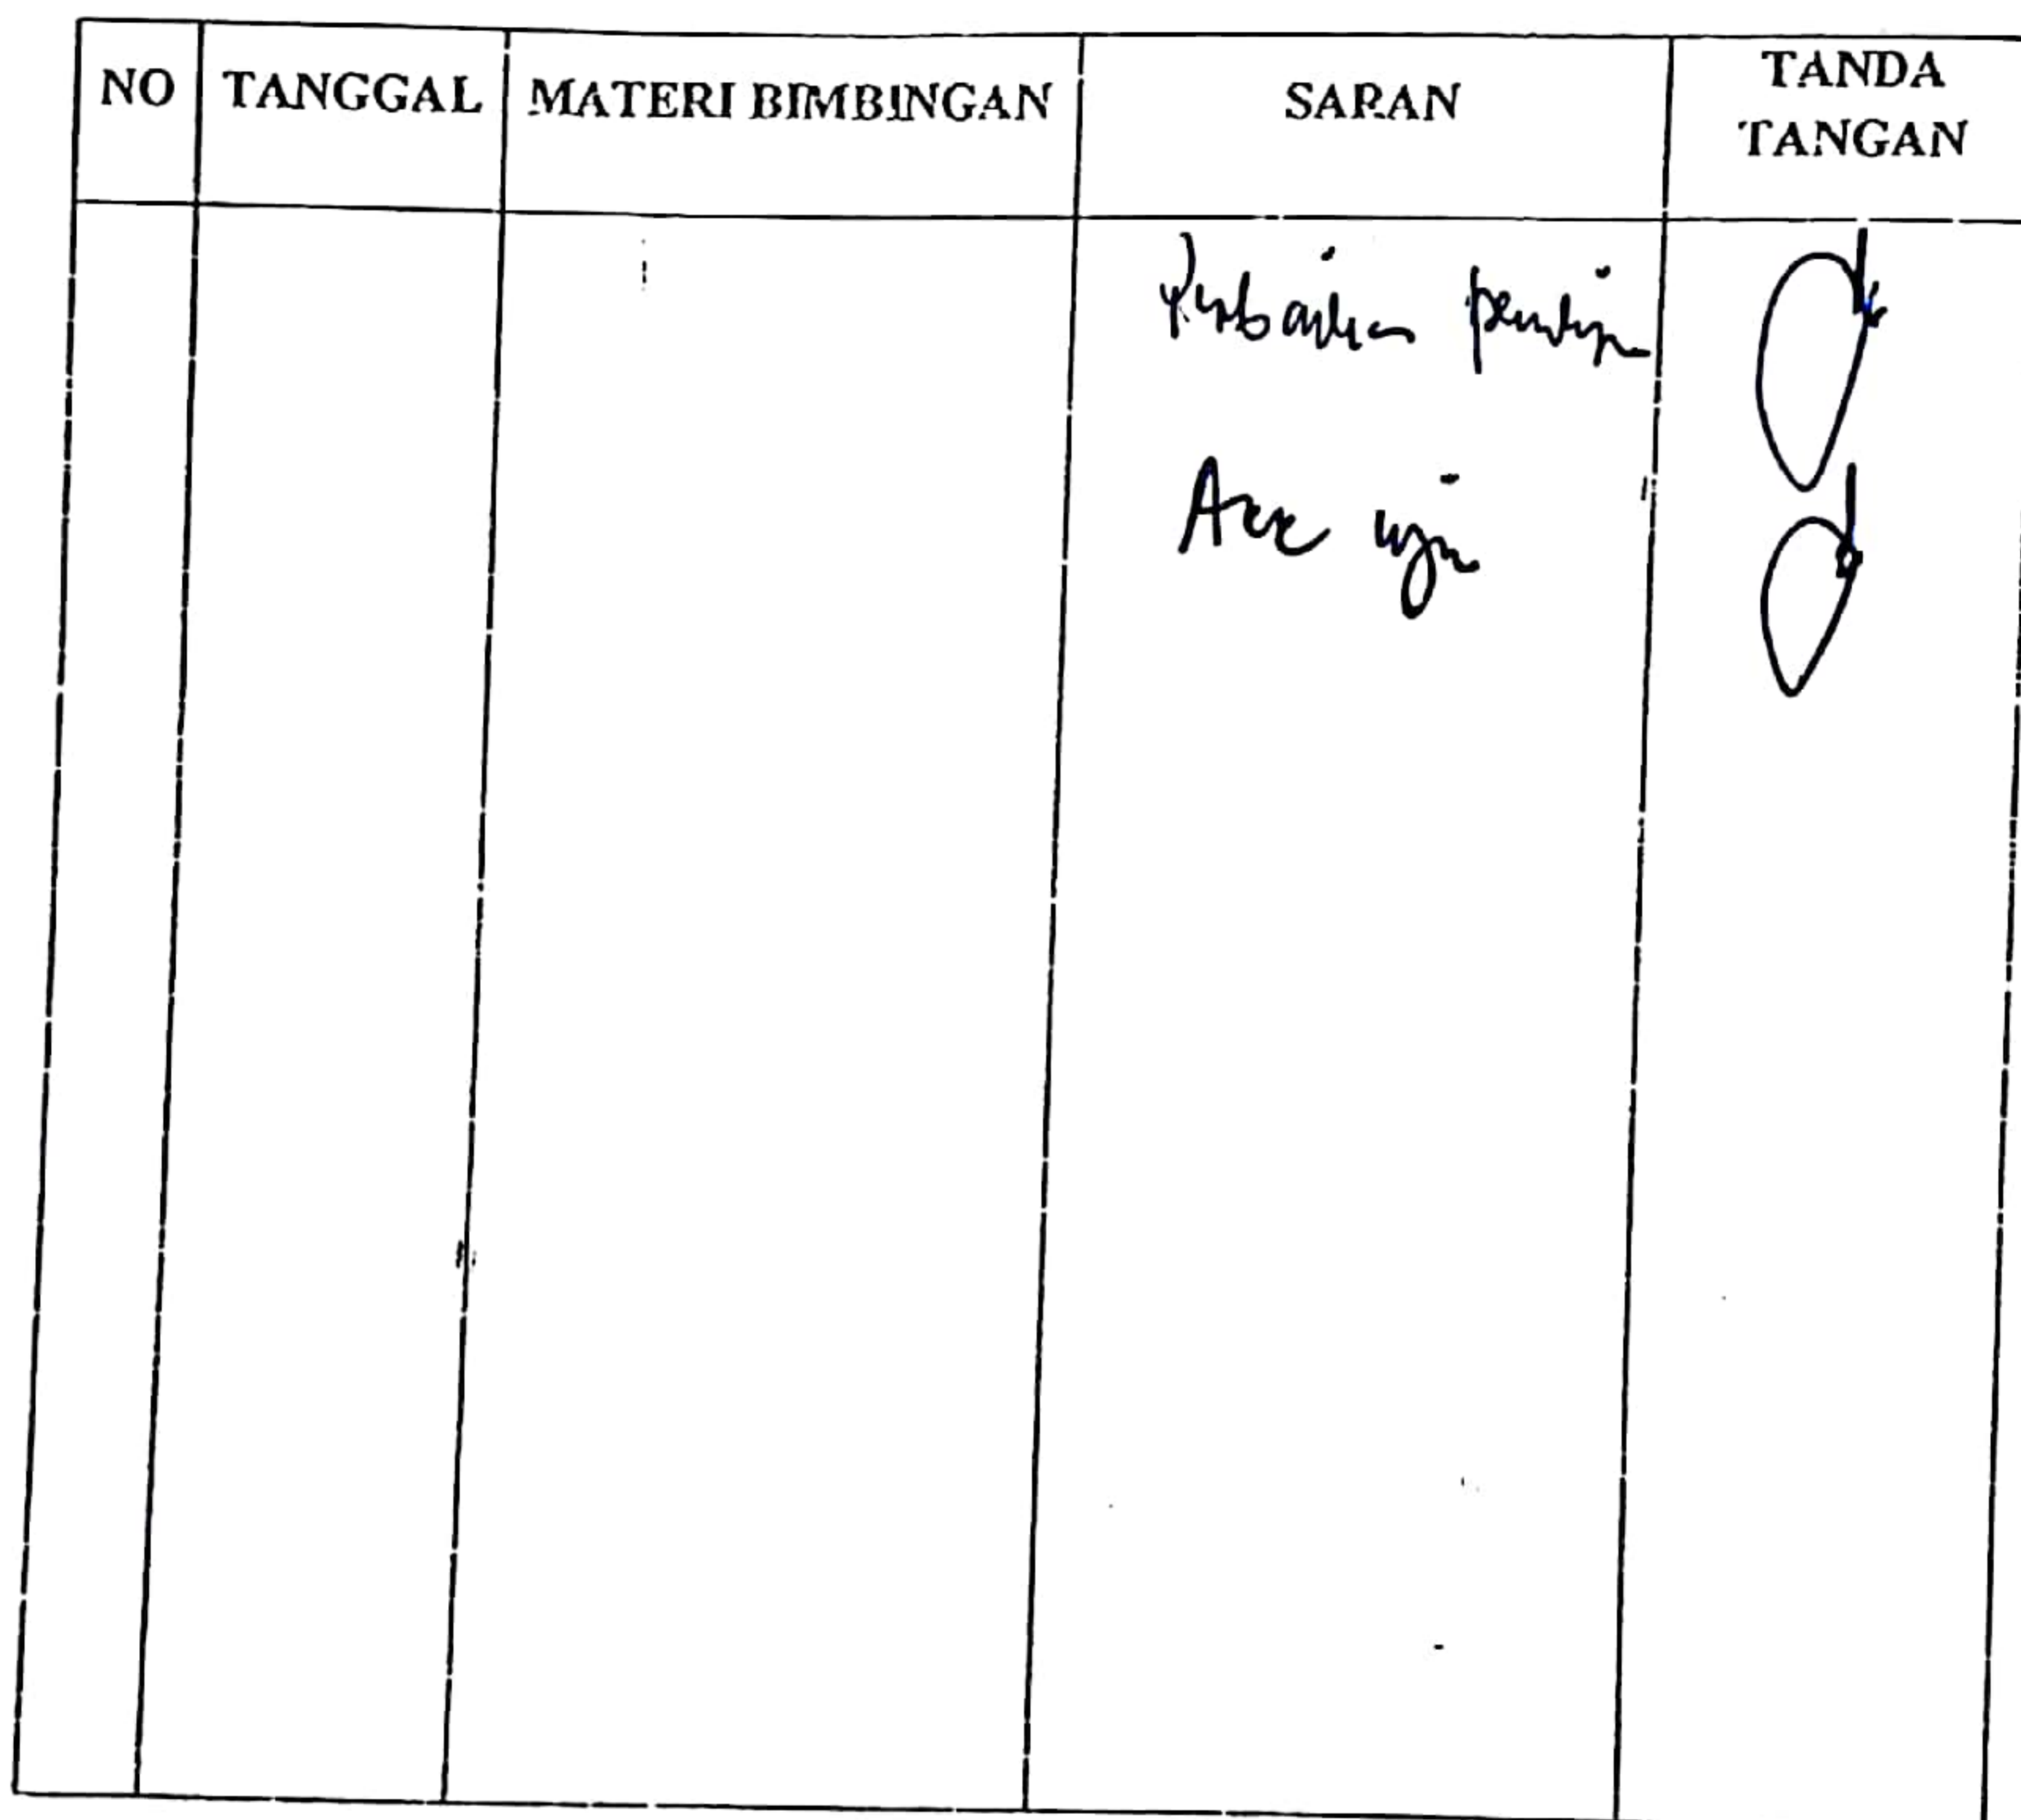 NO TANGGAL MATERI BIMBINGAN SARAN TANDA TANGAN
Perbaikan
Acc ujian